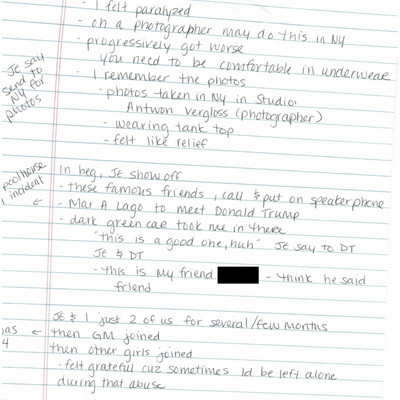 - I felt paralyzed
- oh a photographer may do this in NY
- progressively got worse
you need to be comfortable in underwear
- I remember the photos
- photos taken in NY in Studio:
Antwon Vergloss (photographer)
- wearing tank top
- felt like relief
JE say
send to
NY for
photos
poolhouse
incident
In beg, JE show off
- these famous friends, call & put on speakerphone
- Mar A Lago to meet Donald Trump
- dark green car took me in there
"this is a good one, huh" JE say to DT
JE & DT
- this is my friend - think he said
friend
JE & I just 2 of us for several/few months
then GM joined
then other girls joined
- felt grateful cuz sometimes Id be left alone
during that abuse
4